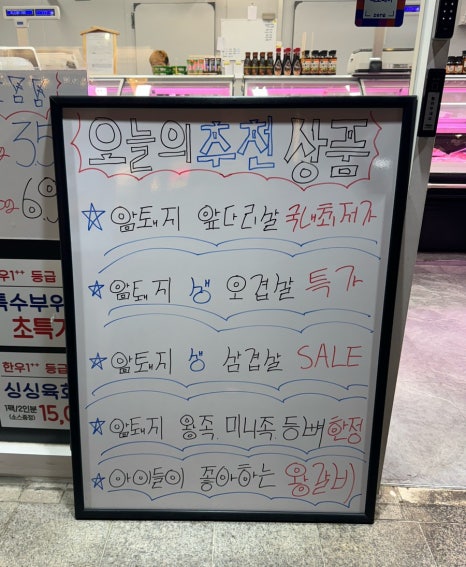 오늘의 추천 상품
☆ 암퇘지 앞다리살 국내최저가
☆ 암퇘지 생 오겹살 특가
☆ 암퇘지 생 삼겹살 SALE
☆ 암퇘지 왕족, 미니족, 등뼈 한정
☆ 아이들이 좋아하는 왕갈비
35
69
한우1++ 등급
특수부위
초특가
한우1++ 등급
싱싱육회
1팩/2인분
(소스증정)
15,0